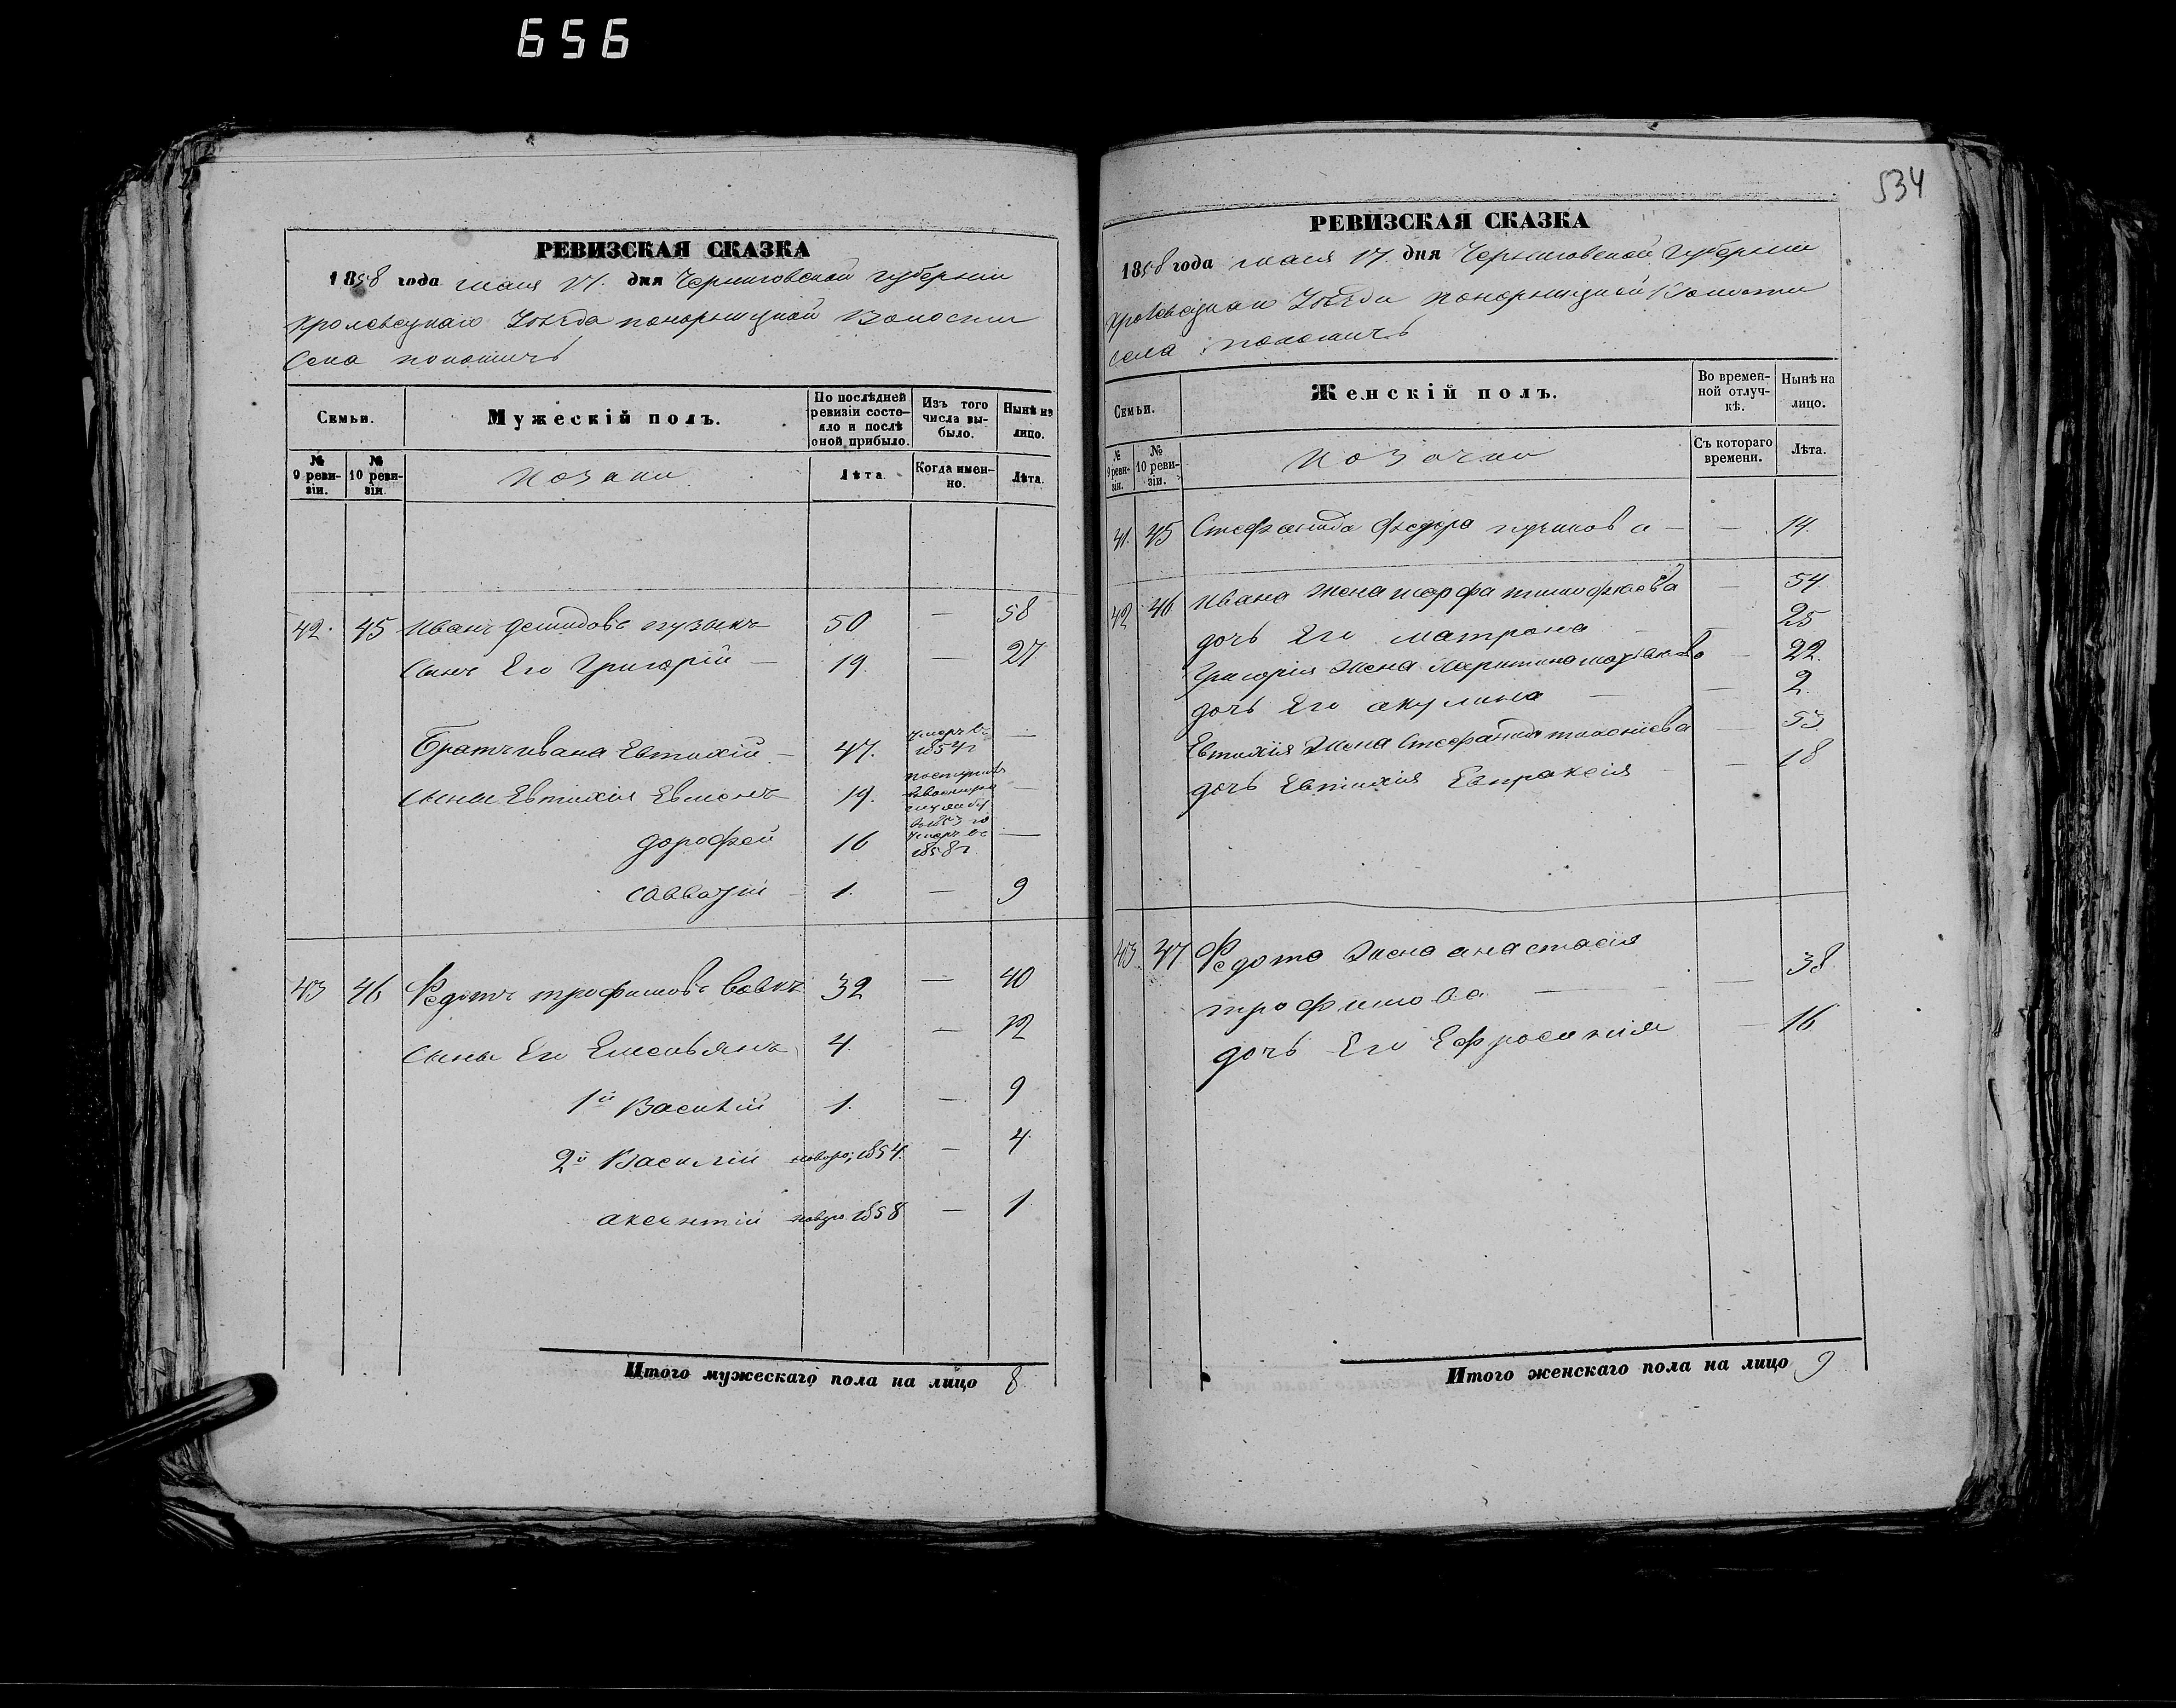 656
534
РЕВИЗСКАЯ СКАЗКА
1858 года маія 17. дня Черниговской губерніи
Кролевецкаго Уѣзда понорницкой Волости
Села покошичь
Семьи.
Мужескій полъ.
По послѣдней ревизіи состояло и послѣ оной прибыло.
Изъ того числа выбыло.
Нынѣ на лицо.
№ 9 ревизіи.
№ 10 ревизіи.
Козаки
Лѣта
Когда именно.
Лѣта.
42. 45 Иванъ демидовъ пузыкъ 50 — 58
Сынъ Его Григорій — 19. — 27
Братъ ивана Евтихій — 47. умеръ въ 1854г —
Сыны Евтихія Евменъ 19. поступилъ
в 1853 го —
дорофей 16 умеръ въ 1858г —
савватій — 1. — 9
43 46 Федотъ трофимовъ Вовкъ 32 — 40
Сыны Его Емельянъ 4. — 12
1й Василій 1. — 9
2й Василій новоро; 1854. — 4
аксентій новоро 1858 — 1
Итого мужескаго пола на лицо 8
РЕВИЗСКАЯ СКАЗКА
1858 года маія 17. дня Черниговской Губерніи
Кролевецкаго Уѣзда понорницкой Волости
села покошичь
Семьи.
Женскій полъ.
Во временной отлучкѣ.
Нынѣ на лицо.
№ 9 ревизіи.
№ 10 ревизіи.
Козачки
Съ котораго времени.
Лѣта.
41. 45 Стефанида федора — — 14.
42 46 Ивана жена марфа тимофѣева — 54
дочь Его матрона — 25
Григорія жена — 22.
дочь Его акулина — — 2.
Евтихія жена Стефанида — 53
дочь Евтихія Евпраксія — 18
43. 47 Федота жена анастасія
трофимова — — 38
дочь Его Ефросинія — 16
Итого женскаго пола на лицо 9